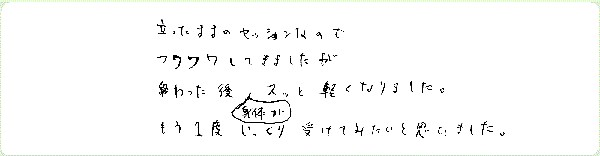 立ったままのセッションなので
フワフワしてきましたが
終わった後、身体がスッと軽くなりました。
もう1度じっくり受けてみたいと思いました。